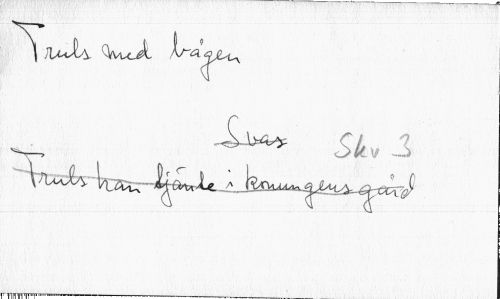 Truls med bågen
Svas Skv 3
Truls han tjänte i konungens gård